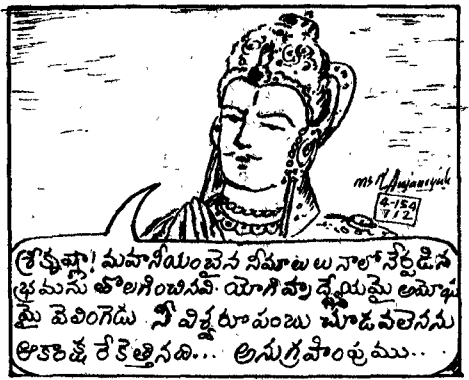 ms R Anjaneyulu
4-154
7/2
శ్రీకృష్ణా! మహనీయంబైన నీమాటలు నాలో నేర్పడిన
భ్రమను తొలగించినవి. యోగిహృద్ధ్యేయమై అమోఘ
మై వెలింగెడు నీ విశ్వరూపంబు చూడవలెనను
ఆకాంక్ష రేకెత్తినది... అనుగ్రహింపుము..